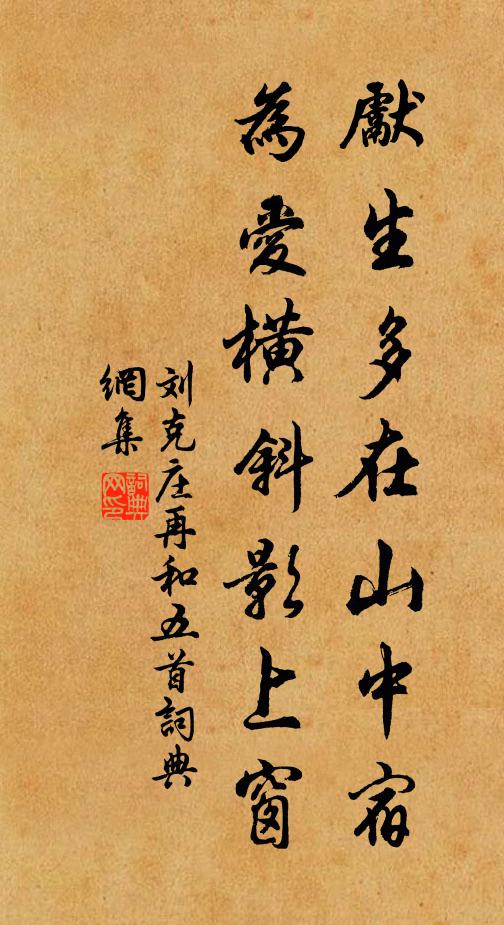 獻生多在山中宿
為愛橫斜影上窗
刘克庄再和五首詞典
網集
詞典
网印